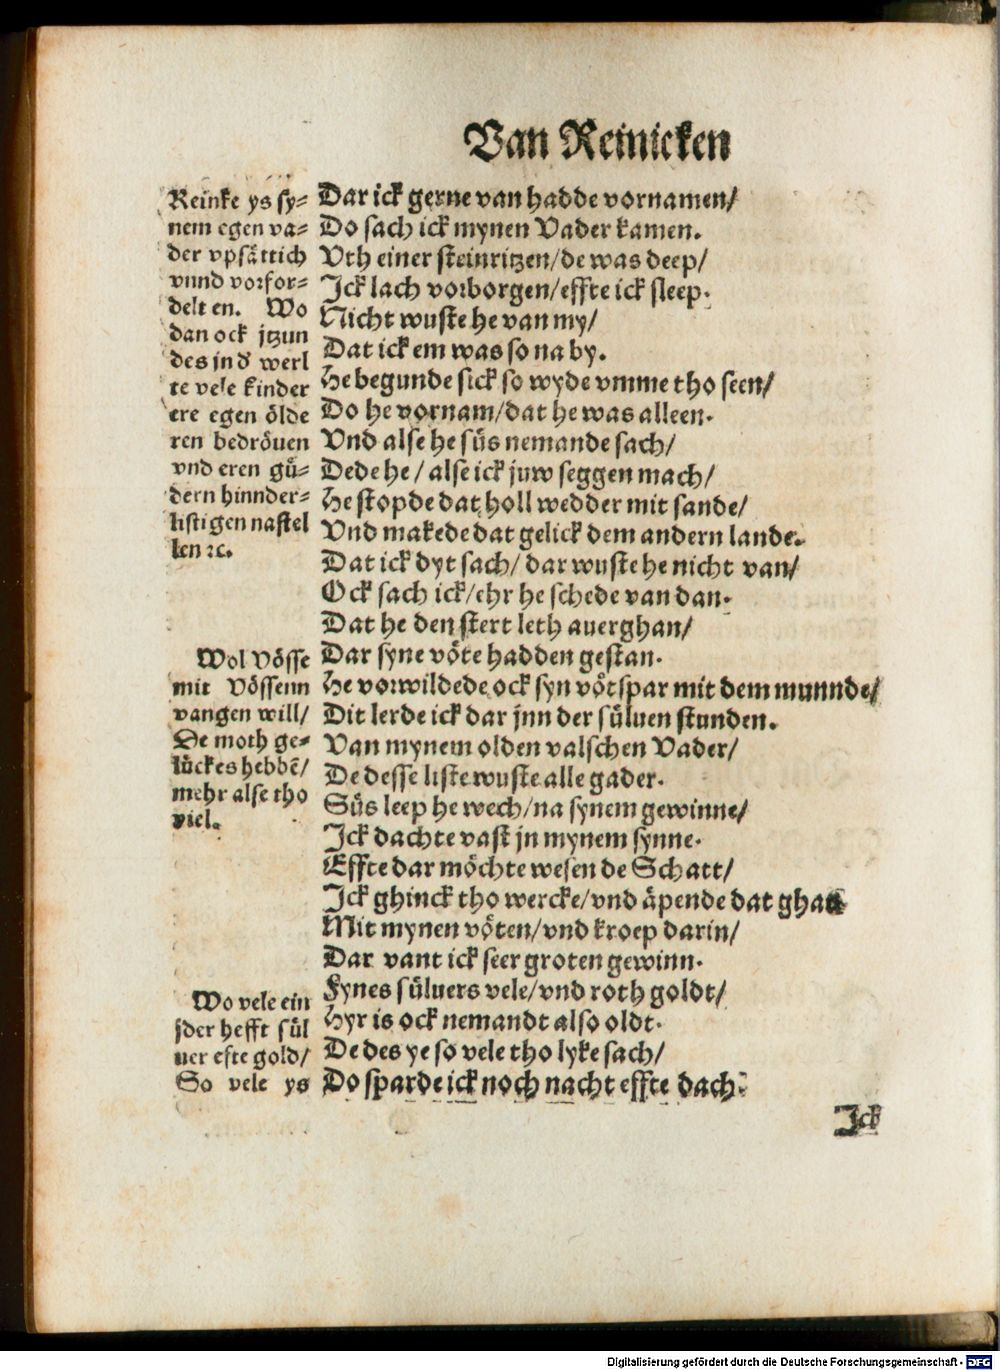 Van Reinicken
Reinke ys sy⸗
nem egen va⸗
der vpsättich
vnnd vorfor⸗
delt en. Wo
dan ock jtzun
des jn d' werl
te vele kinder
ere egen ölde
ren bedröuen
vnd eren gü⸗
dern hinnder⸗
listigen nastel
len ⁊c.
Wol Vösse
mit Vössenn
vangen will/
De moth ge⸗
lückes hebbē/
mehr alse tho
viel.
Wo vele ein
jder hefft sül
uer efte gold/
So vele ys
Dar ick gerne van hadde vornamen/
Do sach ick mynen Vader kamen.
Vth einer steinritzen/de was deep/
Jck lach vorborgen/effte ick sleep.
Nicht wuste he van my/
Dat ick em was so na by.
He begunde sick so wyde vmme tho seen/
Do he vornam/dat he was alleen.
Vnd alse he süs nemande sach/
Dede he/ alse ick juw seggen mach/
He stopde dat holl wedder mit sande/
Vnd makede dat gelick dem andern lande.
Dat ick dyt sach/ dar wuste he nicht van/
Ock sach ick/ehr he schede van dan.
Dat he den stert leth auerghan/
Dar syne vöte hadden gestan.
He vorwildede ock syn vötspar mit dem munnde/
Dit lerde ick dar jnn der süluen stunden.
Van mynem olden valschen Vader/
De desse liste wuste alle gader.
Süs leep he wech/na synem gewinne/
Jck dachte vast jn mynem synne.
Effte dar möchte wesen de Schatt/
Jck ghinck tho wercke/vnd äpende dat ghatt
Mit mynen vöten/vnd kroep darin/
Dar vant ick seer groten gewinn.
Fynes süluers vele/vnd roth goldt/
Hyr is ock nemandt also oldt.
De des ye so vele tho lyke sach/
Do sparde ick noch nacht effte dach.
Jck
Digitalisierung gefördert durch die Deutsche Forschungsgemeinschaft - DFG